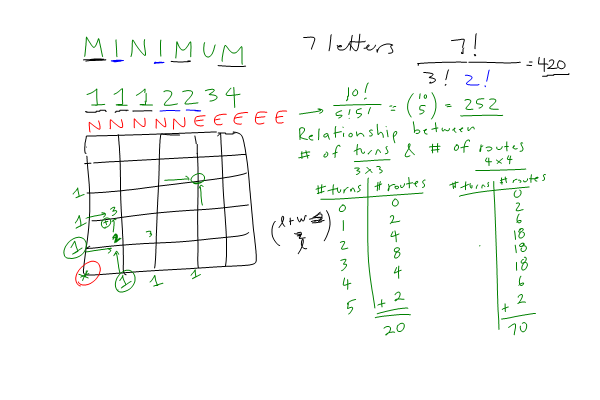 MINIMUM
7 letters
7!
3! 2!
= 420
1 1 1 2 2 3 4
N N N N N E E E E E
→ 10! / 5! 5! = (10 5) = 252
Relationship between
# of turns & # of routes
3x3
4x4
# turns # routes
0 0
1 2
2 4
3 8
4 4
5 + 2
20
# turns # routes
0
2
6
18
18
18
6
+ 2
70
1
1
1
1
1
1
3
3